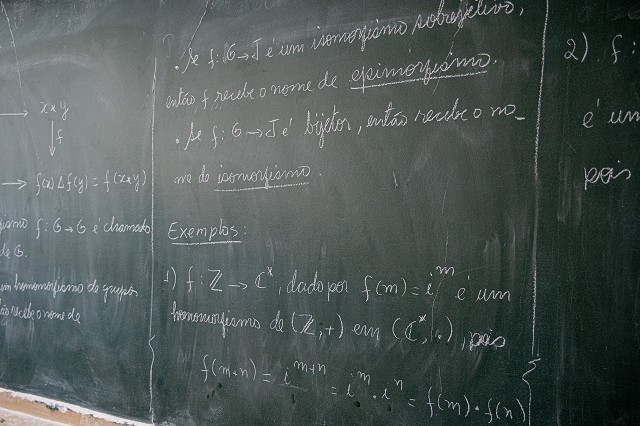 x*y
f
f(x) Δ f(y) = f(x*y)
f: G → G é chamato
de G.
um homomorfismo de grupos
recebe o nome de
. Se f: G → J é um isomorfismo sobrejetivo,
então f recebe o nome de epimorfismo.
. Se f: G → J é bijetor, então recebe o no_
me de isomorfismo.
Exemplos:
1) f: ℤ → ℂ*, dado por f(m) = i^m é um
homomorfismo de (ℤ; +) em (ℂ*, ·), pois
f(m+n) = i^(m+n) = i^m · i^n = f(m) · f(n)
2) f:
é um
pois